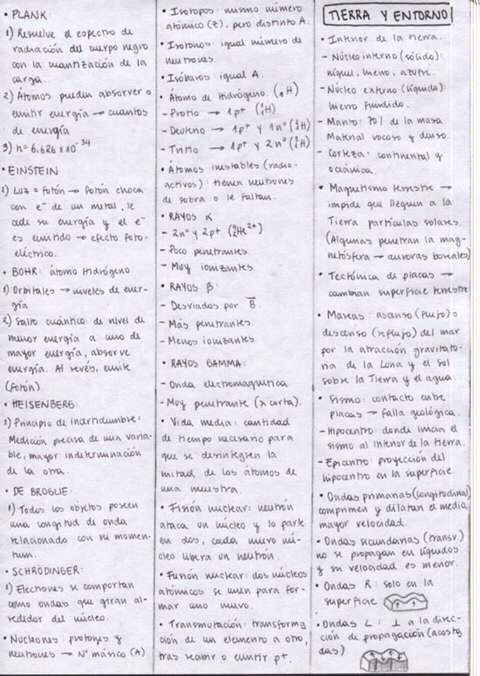 • PLANK:
1) Resuelve el espectro de
radiación del cuerpo negro
con la cuantización de la
carga.
2) Átomos pueden absorver o
emitir energía → cuantos
de energía
3) h = 6.626 x 10⁻³⁴
• EINSTEIN
1) Luz = fotón → fotón choca
con e⁻ de un metal, le
cede su energía y el e⁻
es emitido → efecto foto-
eléctrico.
• BOHR: átomo hidrógeno
1) Orbitales → niveles de ener-
gía
2) Salto cuántico: de nivel de
menor energía a uno de
mayor energía, absorve
energía. Al revés, emite
(fotón)
• HEISENBERG
1) Principio de incertidumbre:
Medición precisa de una varia-
ble, mayor indeterminación
de la otra.
• DE BROGLIE:
1) Todos los objetos poseen
una longitud de onda
relacionado con su momen-
tum.
• SCHRÖDINGER:
1) Electrones se comportan
como ondas que giran al-
rededor del núcleo.
• Nucleones: protones y
neutrones → Nº másico (A)
• Isótopos: mismo número
atómico (z), pero distinto A.
• Isótonos: igual número de
neutrones.
• Isóbaros: igual A.
• Átomo de hidrógeno. (₁H)
- Protio → 1p⁺ (¹₁H)
- Deuterio → 1p⁺ y 1n° (²₁H)
- Tritio → 1p⁺ y 2n° (³₁H)
• Átomos inestables (radio-
activos): tienen neutrones
de sobra o le faltan.
• RAYOS α
- 2n° y 2p⁺ (⁴₂He²⁺)
- Poco penetrantes
- Muy ionizantes.
• RAYOS β:
- Desviados por B.
- Más penetrantes.
- Menos ionizantes.
• RAYOS GAMMA:
- Onda electromagnética.
- Muy penetrante (λ corta).
• Vida media: cantidad
de tiempo necesario para
que se desintegren la
mitad de los átomos de
una muestra.
• Fisión nuclear: neutrón
ataca un núcleo y lo parte
en dos, cada nuevo nú-
cleo libera un neutrón.
• Fusión nuclear: dos núcleos
atómicos se unen para for-
mar uno nuevo.
• Transmutación: transforma
ción de un elemento a otro,
tras recibir o emitir p⁺.
TIERRA Y ENTORNO
• Interior de la tierra.
- Núcleo interno (sólido):
níquel, hierro, azufre.
- Núcleo externo (líquido):
hierro fundido.
- Manto: 70% de la masa
Material rocoso y denso
- Corteza: continental y
oceánica.
• Magnetismo terrestre →
impide que lleguen a la
Tierra partículas solares.
(Algunas penetran la mag-
netósfera → auroras boreales)
• Tectónica de placas →
cambian superficie terrestre
• Mareas: ascenso (flujo) o
descenso (reflujo) del mar
por la atracción gravitato-
ria de la Luna y el sol
sobre la Tierra y el agua.
• Sismo: contacto entre
placas → falla geológica.
- Hipocentro: donde inicia el
sismo al interior de la tierra.
- Epicentro: proyección del
hipocentro en la superficie
• Ondas primarias (longitudinal)
comprimen y dilatan el medio,
mayor velocidad.
• Ondas secundarias (transv.)
no se propagan en líquidos
y su velocidad es menor.
• Ondas R: solo en la
superficie
• Ondas L: ⊥ a la direc-
ción de propagación (acosta
das)